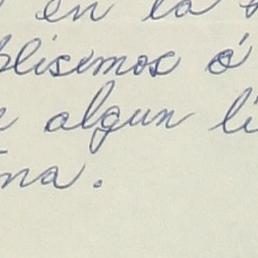 en la
blisimos ó
algun li
na.